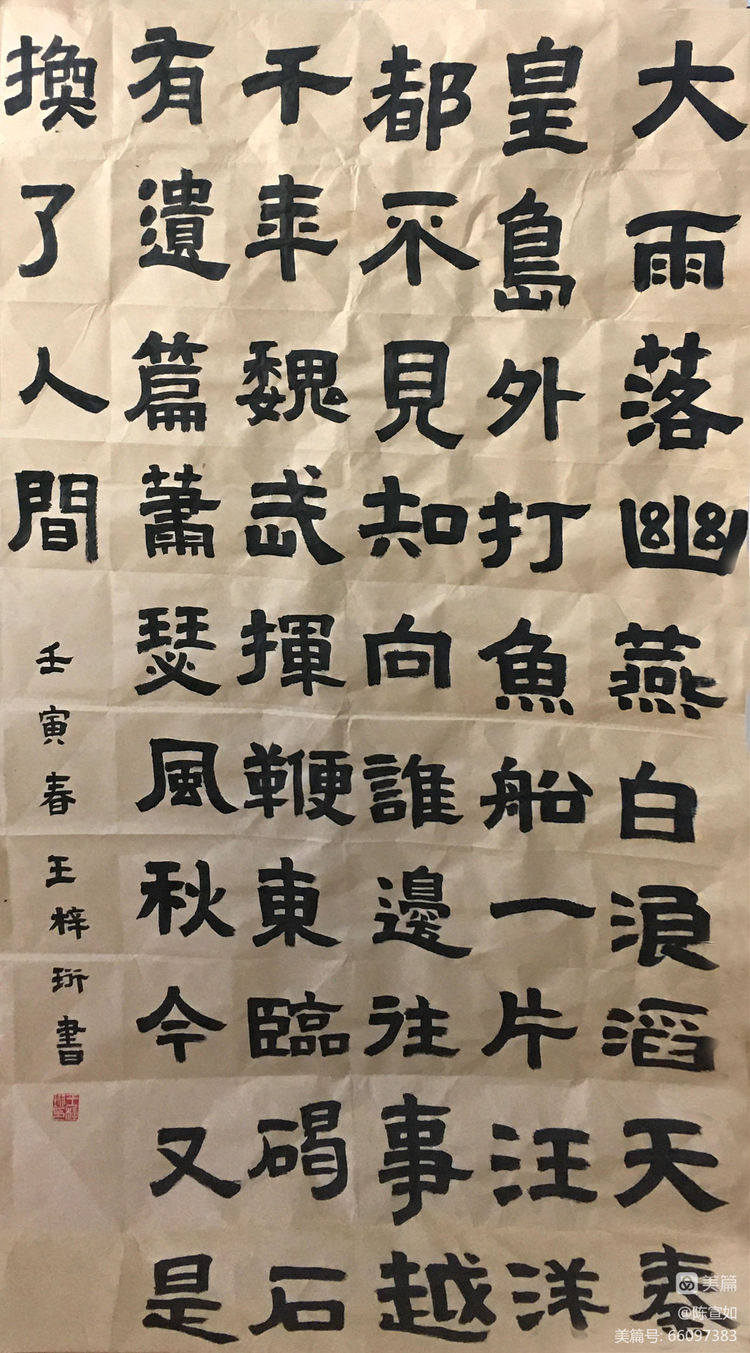 大雨落幽燕白浪滔天秦
皇島外打魚船一片汪洋
都不見知向誰邊往事越
千年魏武揮鞭東臨碣石
有遺篇蕭瑟風秋今又是
換了人間
壬寅春王梓珩書
美篇
@陈宣如
美篇号: 66097383